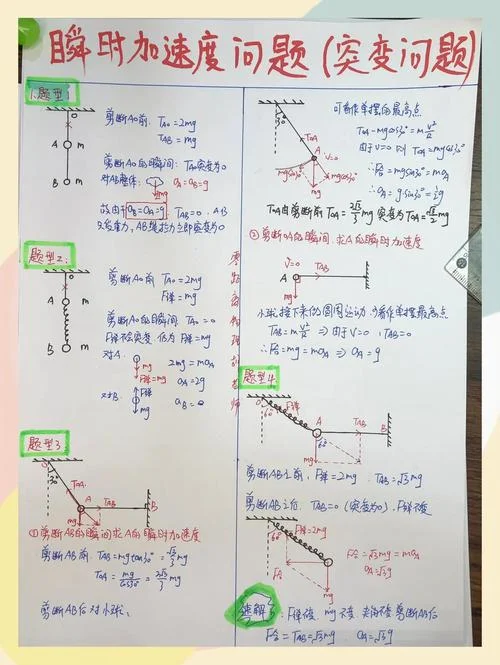 瞬时加速度问题(突变问题)
题型1
剪断AO前. TAO=2mg
TAB=mg
A m
B m
剪断AO的瞬间: TOA突变为0
对AB整体: aA=aB=g
mg
故由于 aB=aA=g TAB=0
AB绳拉力立即突变为0
题型2:
O
A m
B m
剪断AO前 TAO=2mg
F弹=mg
剪断AO的瞬间 TAO=0
F弹不会突变 仍为F弹=mg
对A: 2mg=maA
mg
F弹=mg
aA=2g
对B: F弹
mg
aB=0
题型3
30°
TOA A TAB B
mg
①剪断AB的瞬间求A的瞬时加速度
剪断AB前. TAB=mgtan30°=√3/3mg
TOA=mg/cos30°=2√3/3mg
剪断AB后对小球:
30°
TOA
A V=0
mgsin30° mg mgcos30°
可看作单摆的最高点
TOA-mgcos30°=mV²/L
由于V=0 则TOA=mgcos30°
F合=mgsin30°=maA
∴aA=gsin30°=1/2g
TOA由剪断前TOA=2√3/3mg 突变为TOA=√3/2mg
②剪断OA的瞬间. 求A的瞬时加速度
V=0
A TAB
mg
小球接下来做圆周运动 可看作单摆最高点
TAB=mV²/L ⇒由于V=0 ∴TAB=0
∴F合=mg=maA ⇒ aA=g
题型4.
60° F弹 A TAB B
mg
剪断AB之前. F弹=2mg TAB=√3mg
剪断AB之后. TAB=0(突变为0). F弹不变
60° F弹=2mg
F合
mg
F合=√3mg=maA
aA=√3g
速解: F弹不变. mg不变. 夹角不变 剪断AB后
F合=TAB=√3mg aA=√3g